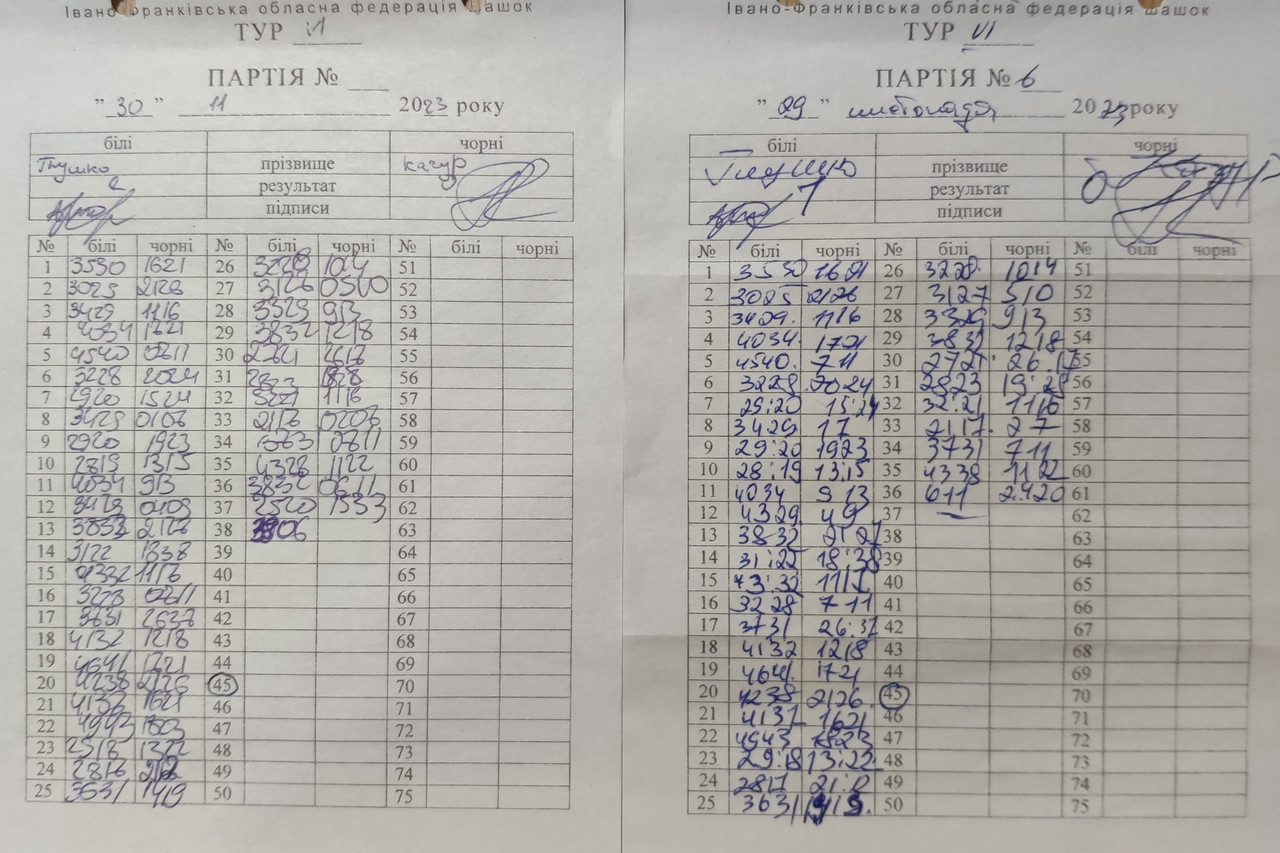 Івано-Франківська обласна федерація шашок
ТУР VI
ПАРТІЯ №
"30" 11 2023 року
білі чорні
Глушко прізвище качур
2 результат
підписи
№ білі чорні № білі чорні № білі чорні
1 3530 1621 26 3228 1014 51
2 3025 2126 27 3126 0510 52
3 3429 1116 28 3329 913 53
4 4034 1721 29 3832 1218 54
5 4540 0711 30 55
6 3228 2024 31 2823 1928 56
7 2920 1524 32 3221 1116 57
8 3429 0106 33 58
9 2920 1923 34 0711 59
10 2819 1315 35 4338 1122 60
11 4034 913 36 3832 0611 61
12 3429 0409 37 2520 1533 62
13 3833 2126 38 3906 63
14 3122 1838 39 64
15 4332 1116 40 65
16 3228 0711 41 66
17 3631 2637 42 67
18 4132 1218 43 68
19 4641 1721 44 69
20 4238 2126 45 70
21 4137 1621 46 71
22 4943 1803 47 72
23 2918 1322 48 73
24 2816 49 74
25 3631 1419 50 75
Івано-Франківська обласна федерація шашок
ТУР VI
ПАРТІЯ № 6
"29" листопада 2023 року
білі чорні
прізвище
результат 0
підписи
№ білі чорні № білі чорні № білі чорні
1 3530 1621 26 3228 1014 51
2 3025 2126 27 3127 510 52
3 3429. 1116 28 3329 913 53
4 4034. 1721 29 3832 1218 54
5 4540. 711 30 2721 26:17 55
6 3228 2024 31 2823 19:28 56
7 29:20 15:24 32 32:21 1116 57
8 3429 17 33 2117. 27 58
9 29:20 1923 34 3731 711 59
10 28:19 13:15 35 4338 1122 60
11 4034 913 36 611 2420 61
12 4329 49 37 62
13 3832 2127 38 63
14 31:22 18:38 39 64
15 43:32 1117 40 65
16 3228 711 41 66
17 3731 26:37 42 67
18 4132 1218 43 68
19 4641. 1721 44 69
20 4238 2126. 45 70
21 4137 1621 46 71
22 4943 1823 47 72
23 29:18 13:22 48 73
24 2817 21:12 49 74
25 3631 1419. 50 75